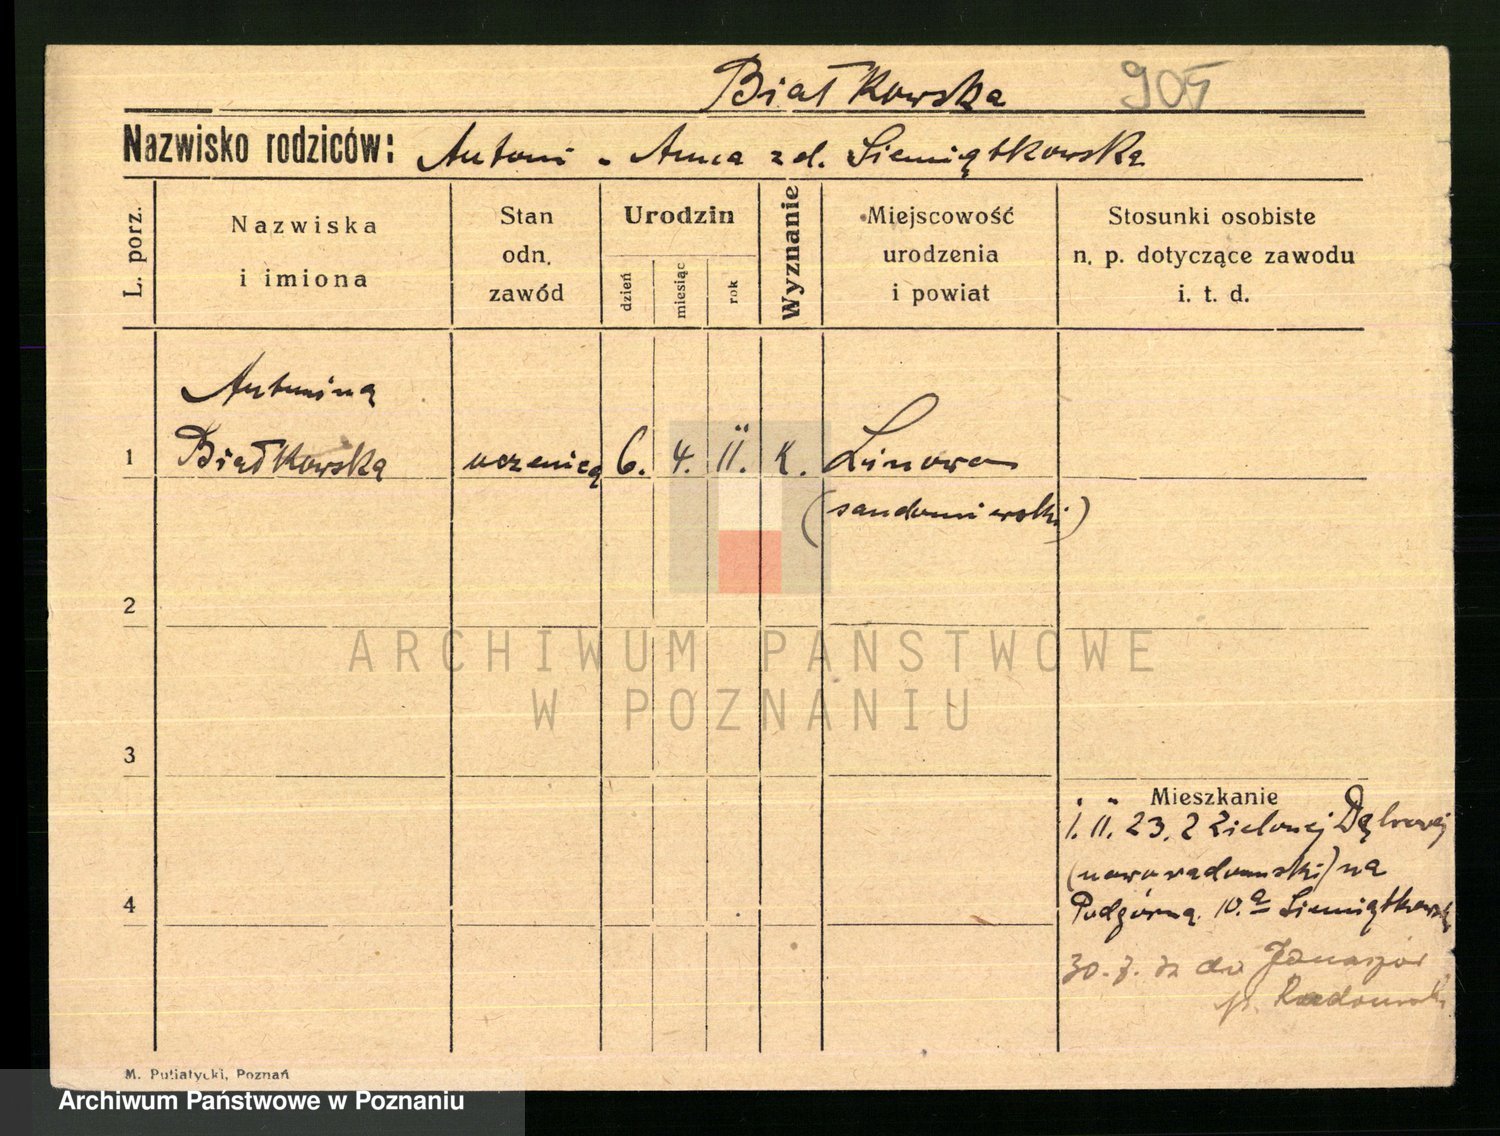 Białkowska 905
Nazwisko rodziców: Antoni - Anna z d. Siemiątkowska
L. porz.
Nazwiska
i imiona
Stan
odn.
zawód
Urodzin
dzień
miesiąc
rok
Wyznanie
Miejscowość
urodzenia
i powiat
Stosunki osobiste
n. p. dotyczące zawodu
i. t. d.
Antonina
1 Białkowska uczenica 6. 4. 11. k. Linowo
(sandomierski)
2
ARCHIWUM PAŃSTWOWE
W POZNANIU
3
Mieszkanie
1. 11. 23. z Zielonej Dąbrowy
(noworadomski) na
4
Podgórną 10.a Siemiątkowska
30. 7. do
p. Radomsk
M. Putiatycki, Poznań
Archiwum Państwowe w Poznaniu